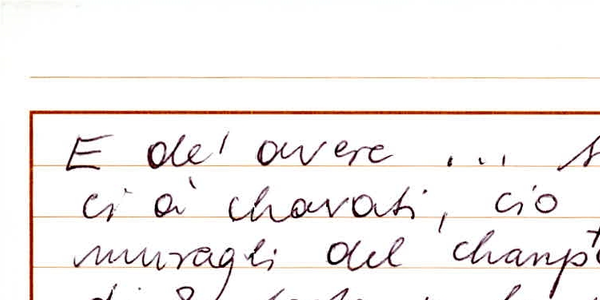 E de' avere ...
ci à chavati, cio
muragli del
di 8